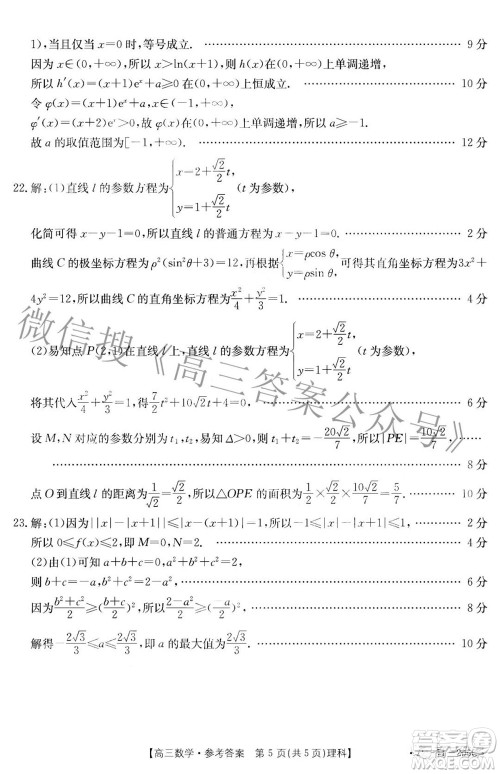 1),当且仅当x=0时,等号成立. 9分
因为x>0,所以x>ln(x+1),所以h(x)在(0,+∞)上单调递增,
所以h′(x)=(x+1)eˣ+a≥0在(0,+∞)上恒成立. 10分
令φ(x)=(x+1)eˣ+a,
φ′(x)=(x+2)eˣ>0,所以φ(x)在(0,+∞)上单调递增,所以a≥-1. 11分
故a的取值范围为[-1,+∞). 12分
22.解:(1)直线l的参数方程为{x=2+(√2/2)t, y=1+(√2/2)t (t为参数),
化简可得x-y-1=0,所以直线l的普通方程为x-y-1=0. 2分
曲线C的极坐标方程为ρ²(sin²θ+3)=12,再根据{x=ρcosθ, y=ρsinθ,可得其直角坐标方程为3x²+
4y²=12,所以曲线C的直角坐标方程为x²/4+y²/3=1. 4分
(2)易知点P(2,1)在直线l上,直线l的参数方程为{x=2+(√2/2)t, y=1+(√2/2)t (t为参数),
将其代入x²/4+y²/3=1,得(7/2)t²+10√2t+4=0. 6分
设M,N对应的参数分别为t₁,t₂,易知Δ>0,则t₁+t₂=-20√2/7,所以|PE|=10√2/7,
8分
点O到直线l的距离为1/√2=√2/2,所以△OPE的面积为1/2×√2/2×10√2/7=5/7. 10分
23.解:(1)因为||x|-|x+1||≤|x-(x+1)|=1, 2分
所以0≤f(x)≤2,即M=0,N=2. 4分
(2)由(1)可知a+b+c=0,a²+b²+c²=2,
则b+c=-a,b²+c²=2-a². 6分
因为(b²+c²)/2≥((b+c)/2)²,所以(2-a²)/2≥(-a/2)², 8分
解得-2√3/3≤a≤2√3/3,即a的最大值为2√3/3. 10分
微信搜《高三答案公众号》
【高三数学·参考答案 第5页(共5页)理科】